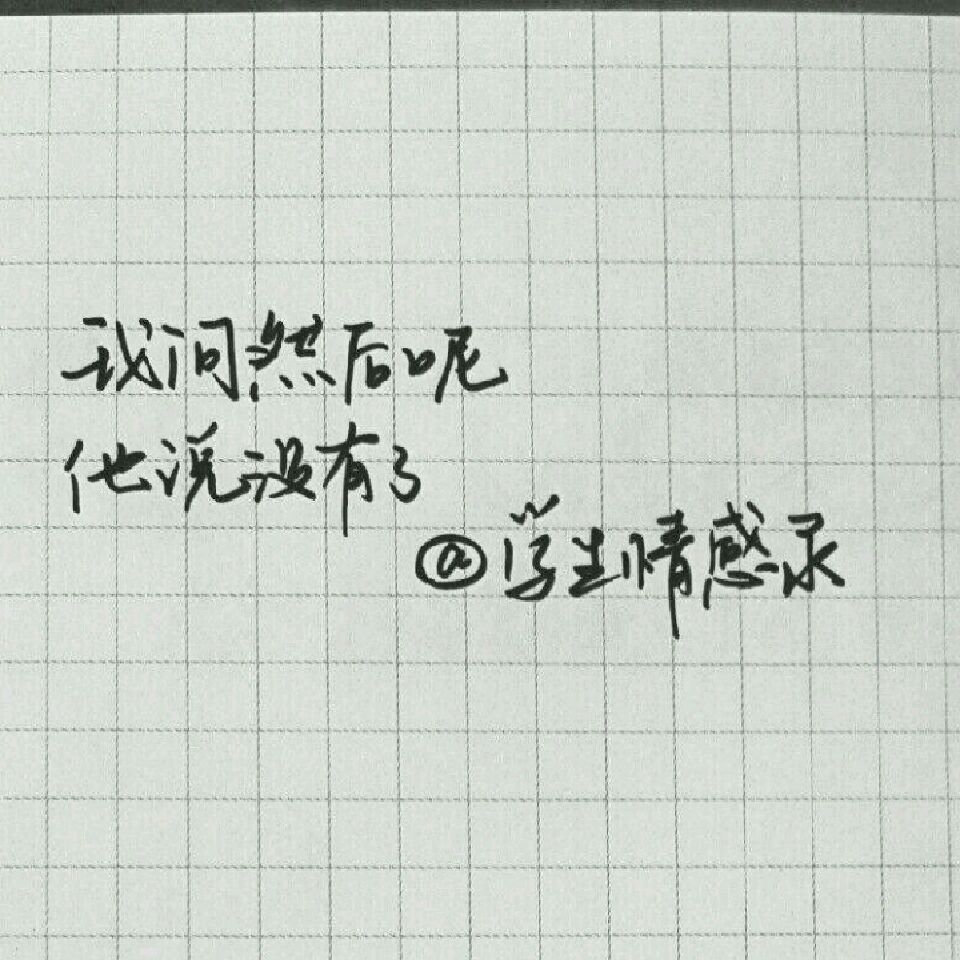 我问然后呢
他说没有了
@学生情感录